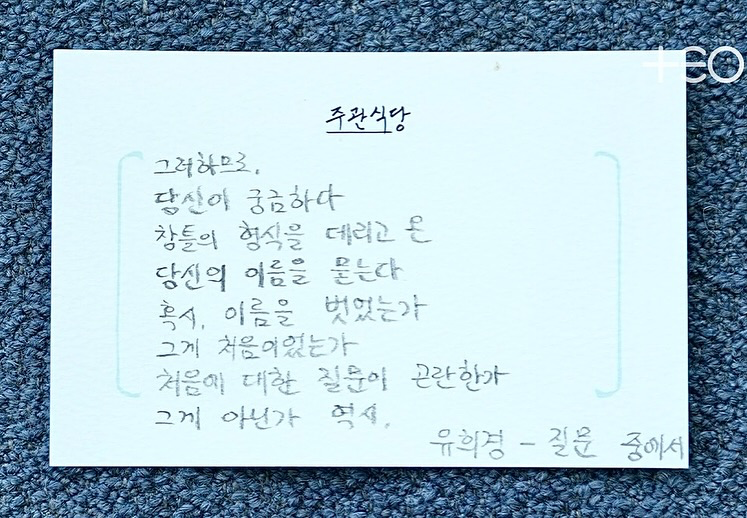 teo
주관식당
그러하므로,
당신이 궁금하다
창틀의 형식을 데리고 온
당신의 이름을 묻는다
혹시, 이름을 벗었는가
그게 처음이었는가
처음에 대한 질문이 곤란한가
그게 아닌가 역시,
유희경 - 질문 중에서